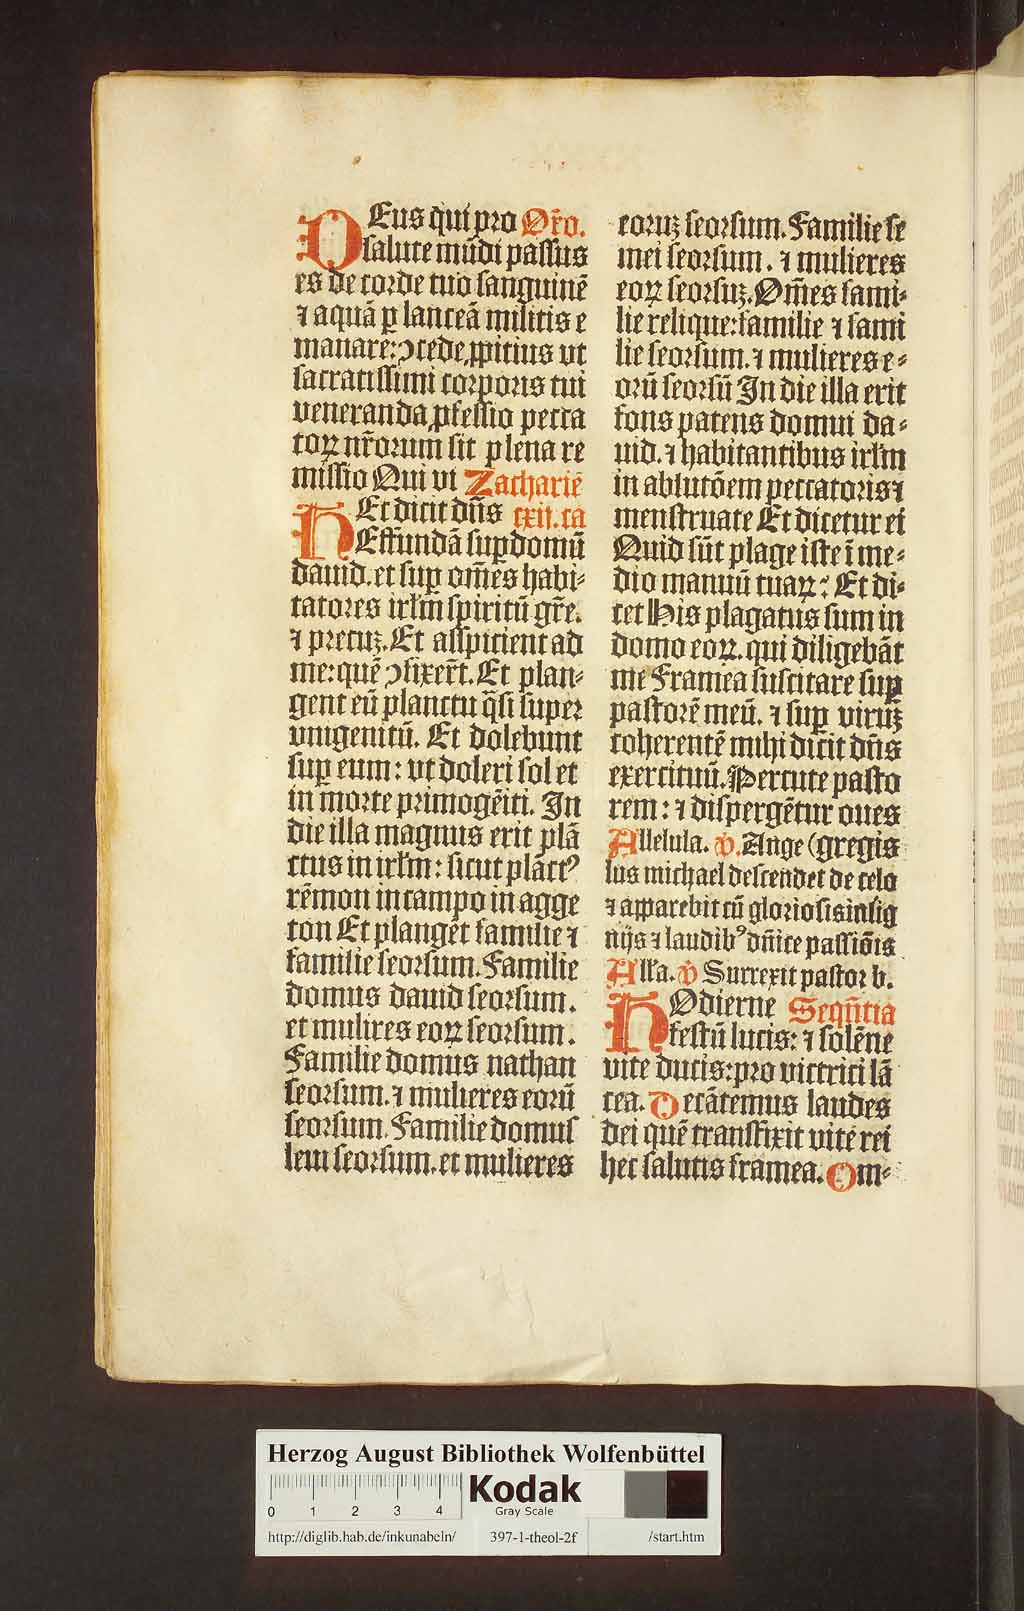 DEus qui pro Or̄o.
salute mūdi passus
es de corde tuo sanguinē
⁊ aquā ꝑ lanceā militis e
manare: ↄcede ꝓpitius vt
sacratissimi corporis tui
veneranda ꝓfessio pecca
toꝝ nr̄orum sit plena re
missio Qui vi Zacharie
HEc dicit dn̄s cxij. ca
Effundā suꝑ domū
dauid. et suꝑ om̄es habi⸗
tatores irl̄m spiritū gr̄e.
⁊ precuꝫ. Et aspicient ad
me: quē ↄfixer̄t. Et plan⸗
gent eū planctu q̄si super
vnigenitū. Et dolebunt
suꝑ eum: vt doleri sol et
in morte primogēiti. In
die illa magnus erit plā
ctus in irl̄m: sicut plactꝰ
rēmon in campo in agge
ton Et plangēt familie ⁊
familie seorsum. Familie
domus dauid seorsum.
et mulires eoꝝ seorsum.
Familie domus nathan
seorsum. ⁊ mulieres eorū
seorsum. Familie domus
leui seorsum. et mulieres
eoruꝫ seorsum. Familie se
mei seorsum. ⁊ mulieres
eoꝝ seorsuꝫ. Om̄es fami⸗
lie relique: familie ⁊ fami
lie seorsum. ⁊ mulieres e⸗
orū seorsū In die illa erit
fons patens domui da⸗
uid. ⁊ habitantibus irl̄m
in ablutōem peccatoris ⁊
menstruate Et dicetur ei
Quid sūt plage iste ī me⸗
dio manuū tuaꝝ: Et di⸗
cet His plagatus sum in
domo eoꝝ. qui diligebāt
me Framea suscitare suꝑ
pastorē meū. ⁊ suꝑ viruꝫ
coherentē mihi dicit dn̄s
exercituū. Percute pasto
rem: ⁊ dispergētur oues
Allelula. v̄. Ange (gregis
lus michael descendet de celo
⁊ apparebit cū gloriosis insig
nijs ⁊ laudibꝰ dn̄ice passiōis
All̄a. v̄ Surrexit pastor b.
HOdierne Seqn̄tia
festū lucis: ⁊ solēne
vite ducis: pro victrici lā
cea. Decātemus laudes
dei quē transfixit vite rei
hec salutis framea. Om⸗
Herzog August Bibliothek Wolfenbüttel
0 1 2 3 4
Kodak
Gray Scale
http://diglib.hab.de/inkunabeln/ 397-1-theol-2f /start.htm